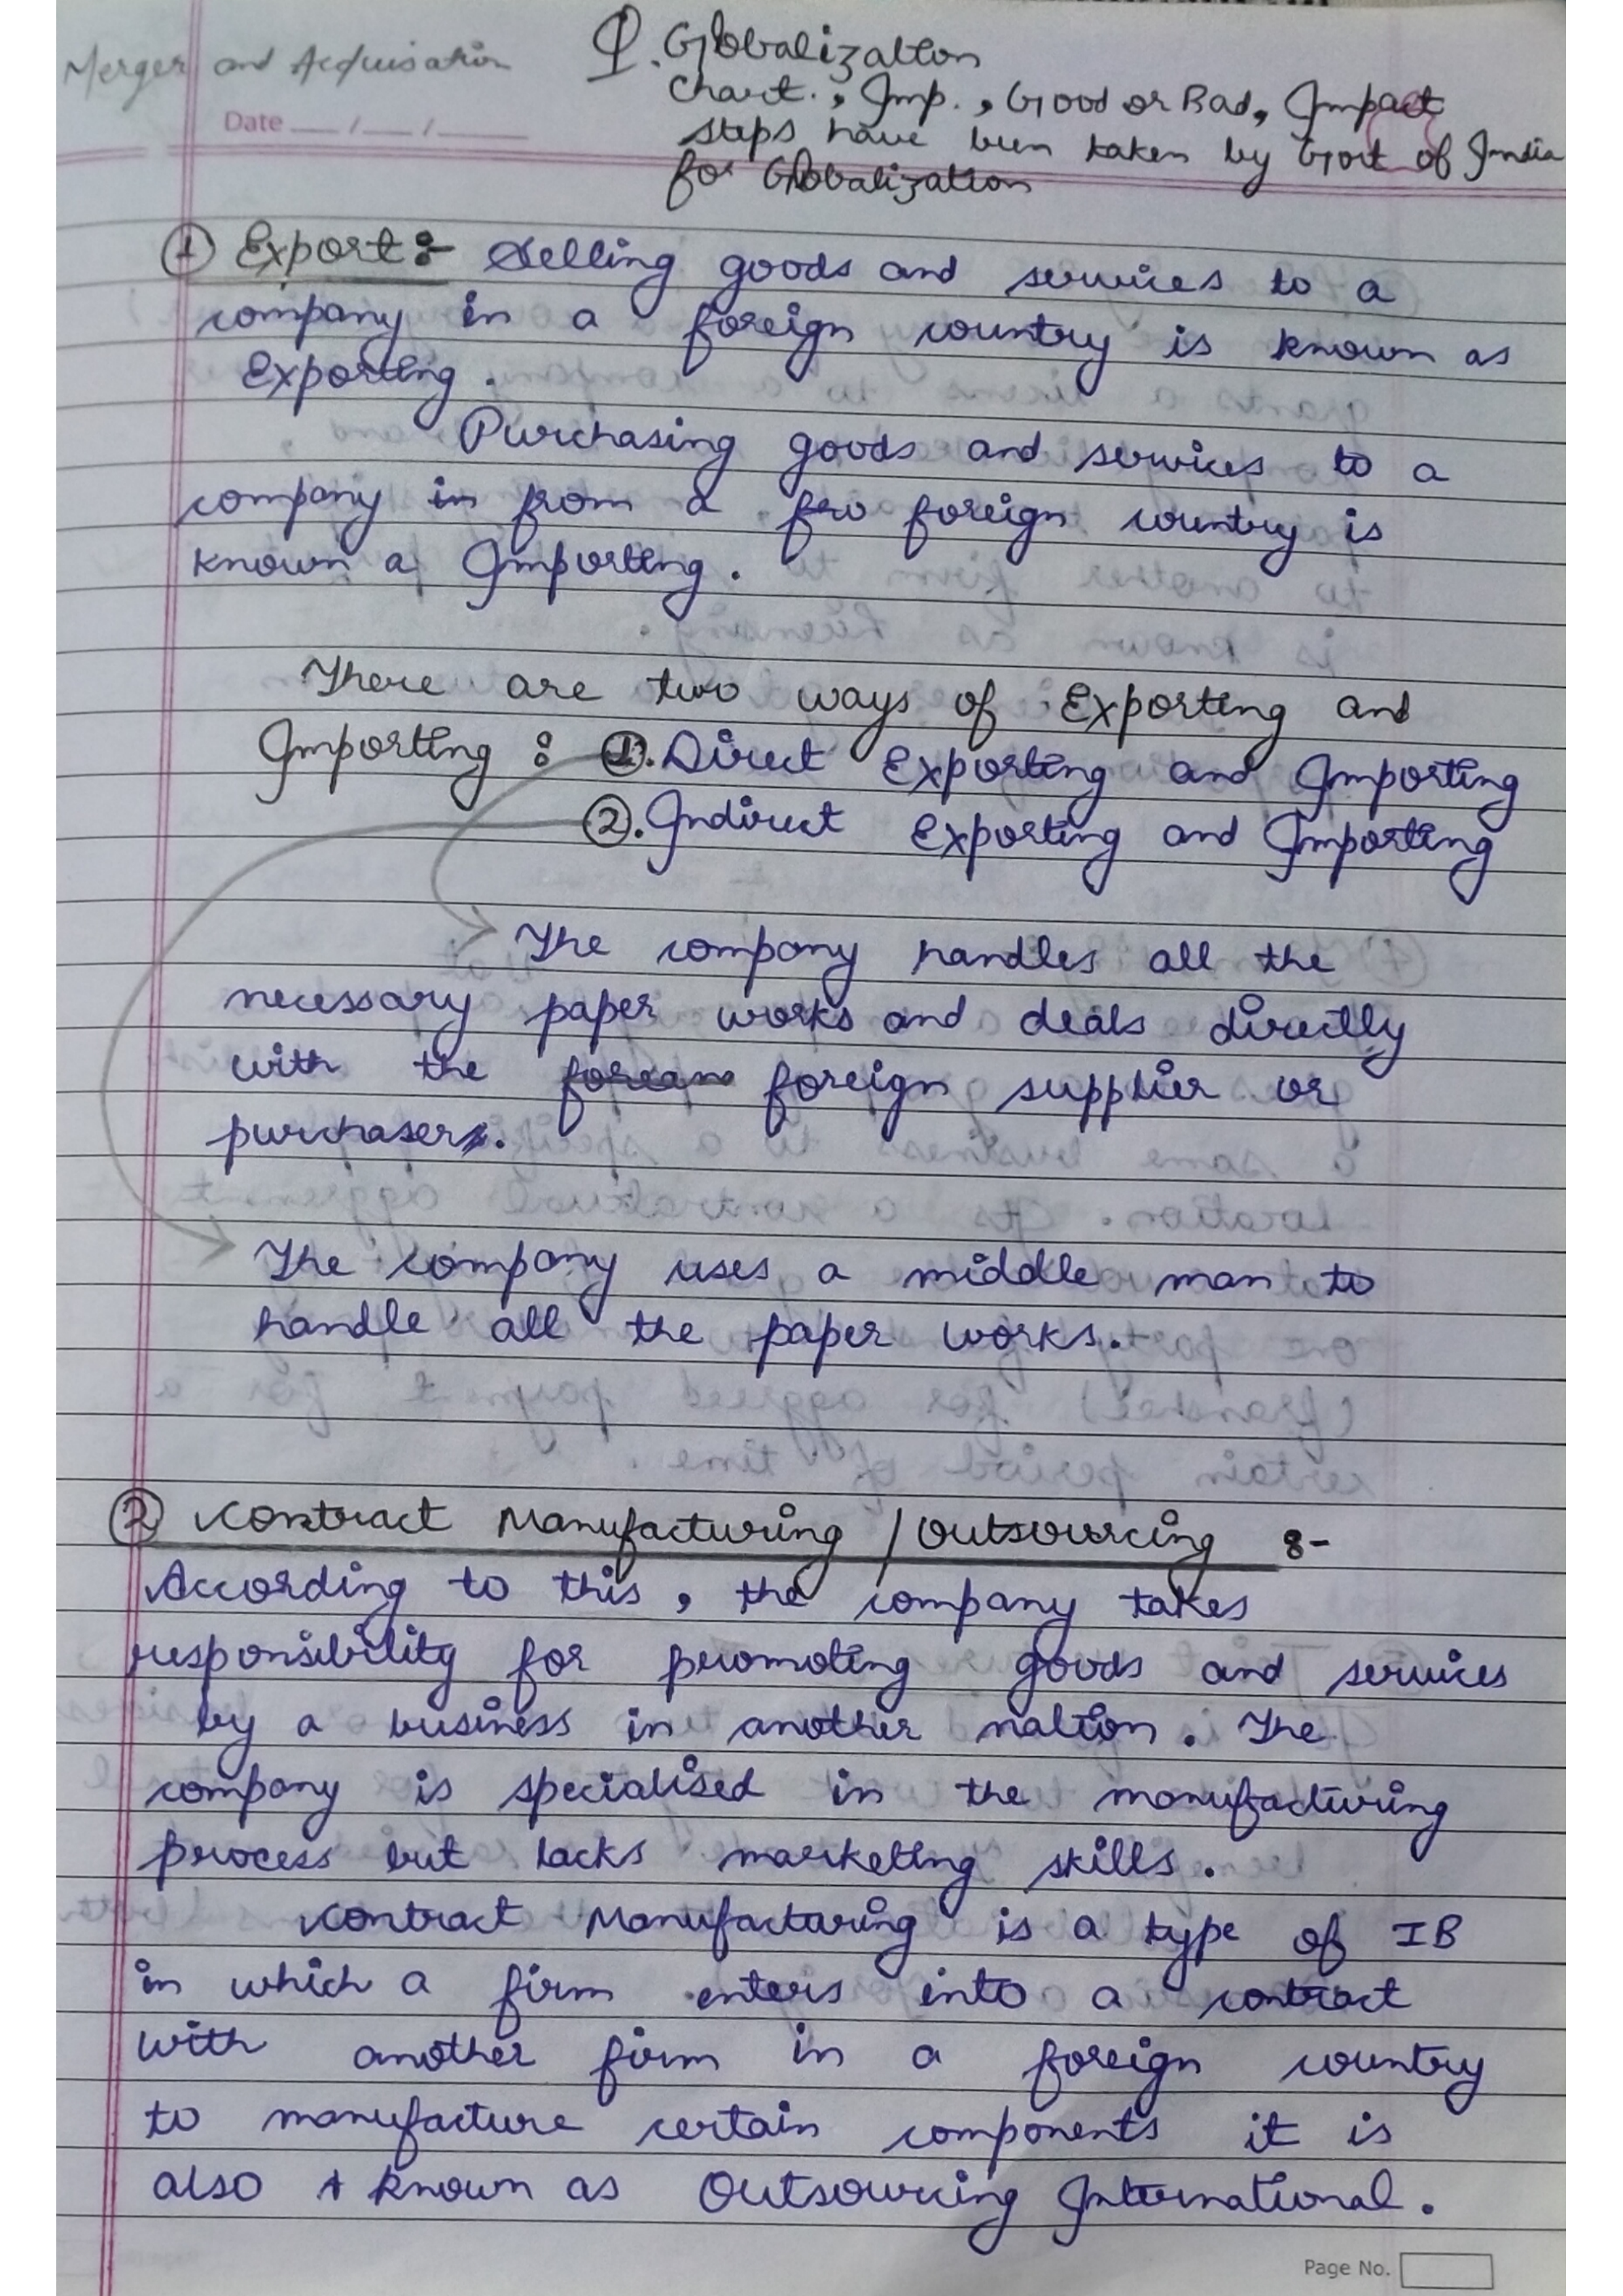 Merger and Acquisation
Q. Globalization
Chart., Imp., Good or Bad, Impact
steps have been taken by Govt of India
for Globalization
Date __/__/____
① Export :- Selling goods and services to a
company in a foreign country is known as
Exporting.
Purchasing goods and services to a
company in from a fro foreign country is
known a Importing.
There are two ways of Exporting and
Importing : ①. Direct Exporting and Importing
②. Indirect Exporting and Importing
The company handles all the
necessary paper works and deals directly
with the forean foreign supplier or
purchaser.
The company uses a middle man to
handle all the paper works.
② Contract Manufacturing / Outsourcing :-
According to this, the company takes
responsibility for promoting goods and services
by a business in another nation. The
company is specialised in the manufacturing
process but lacks marketing skills.
Contract Manufacturing is a type of IB
in which a firm enters into a contract
with another firm in a foreign country
to manufacture certain components it is
also known as Outsourcing International.
Page No.